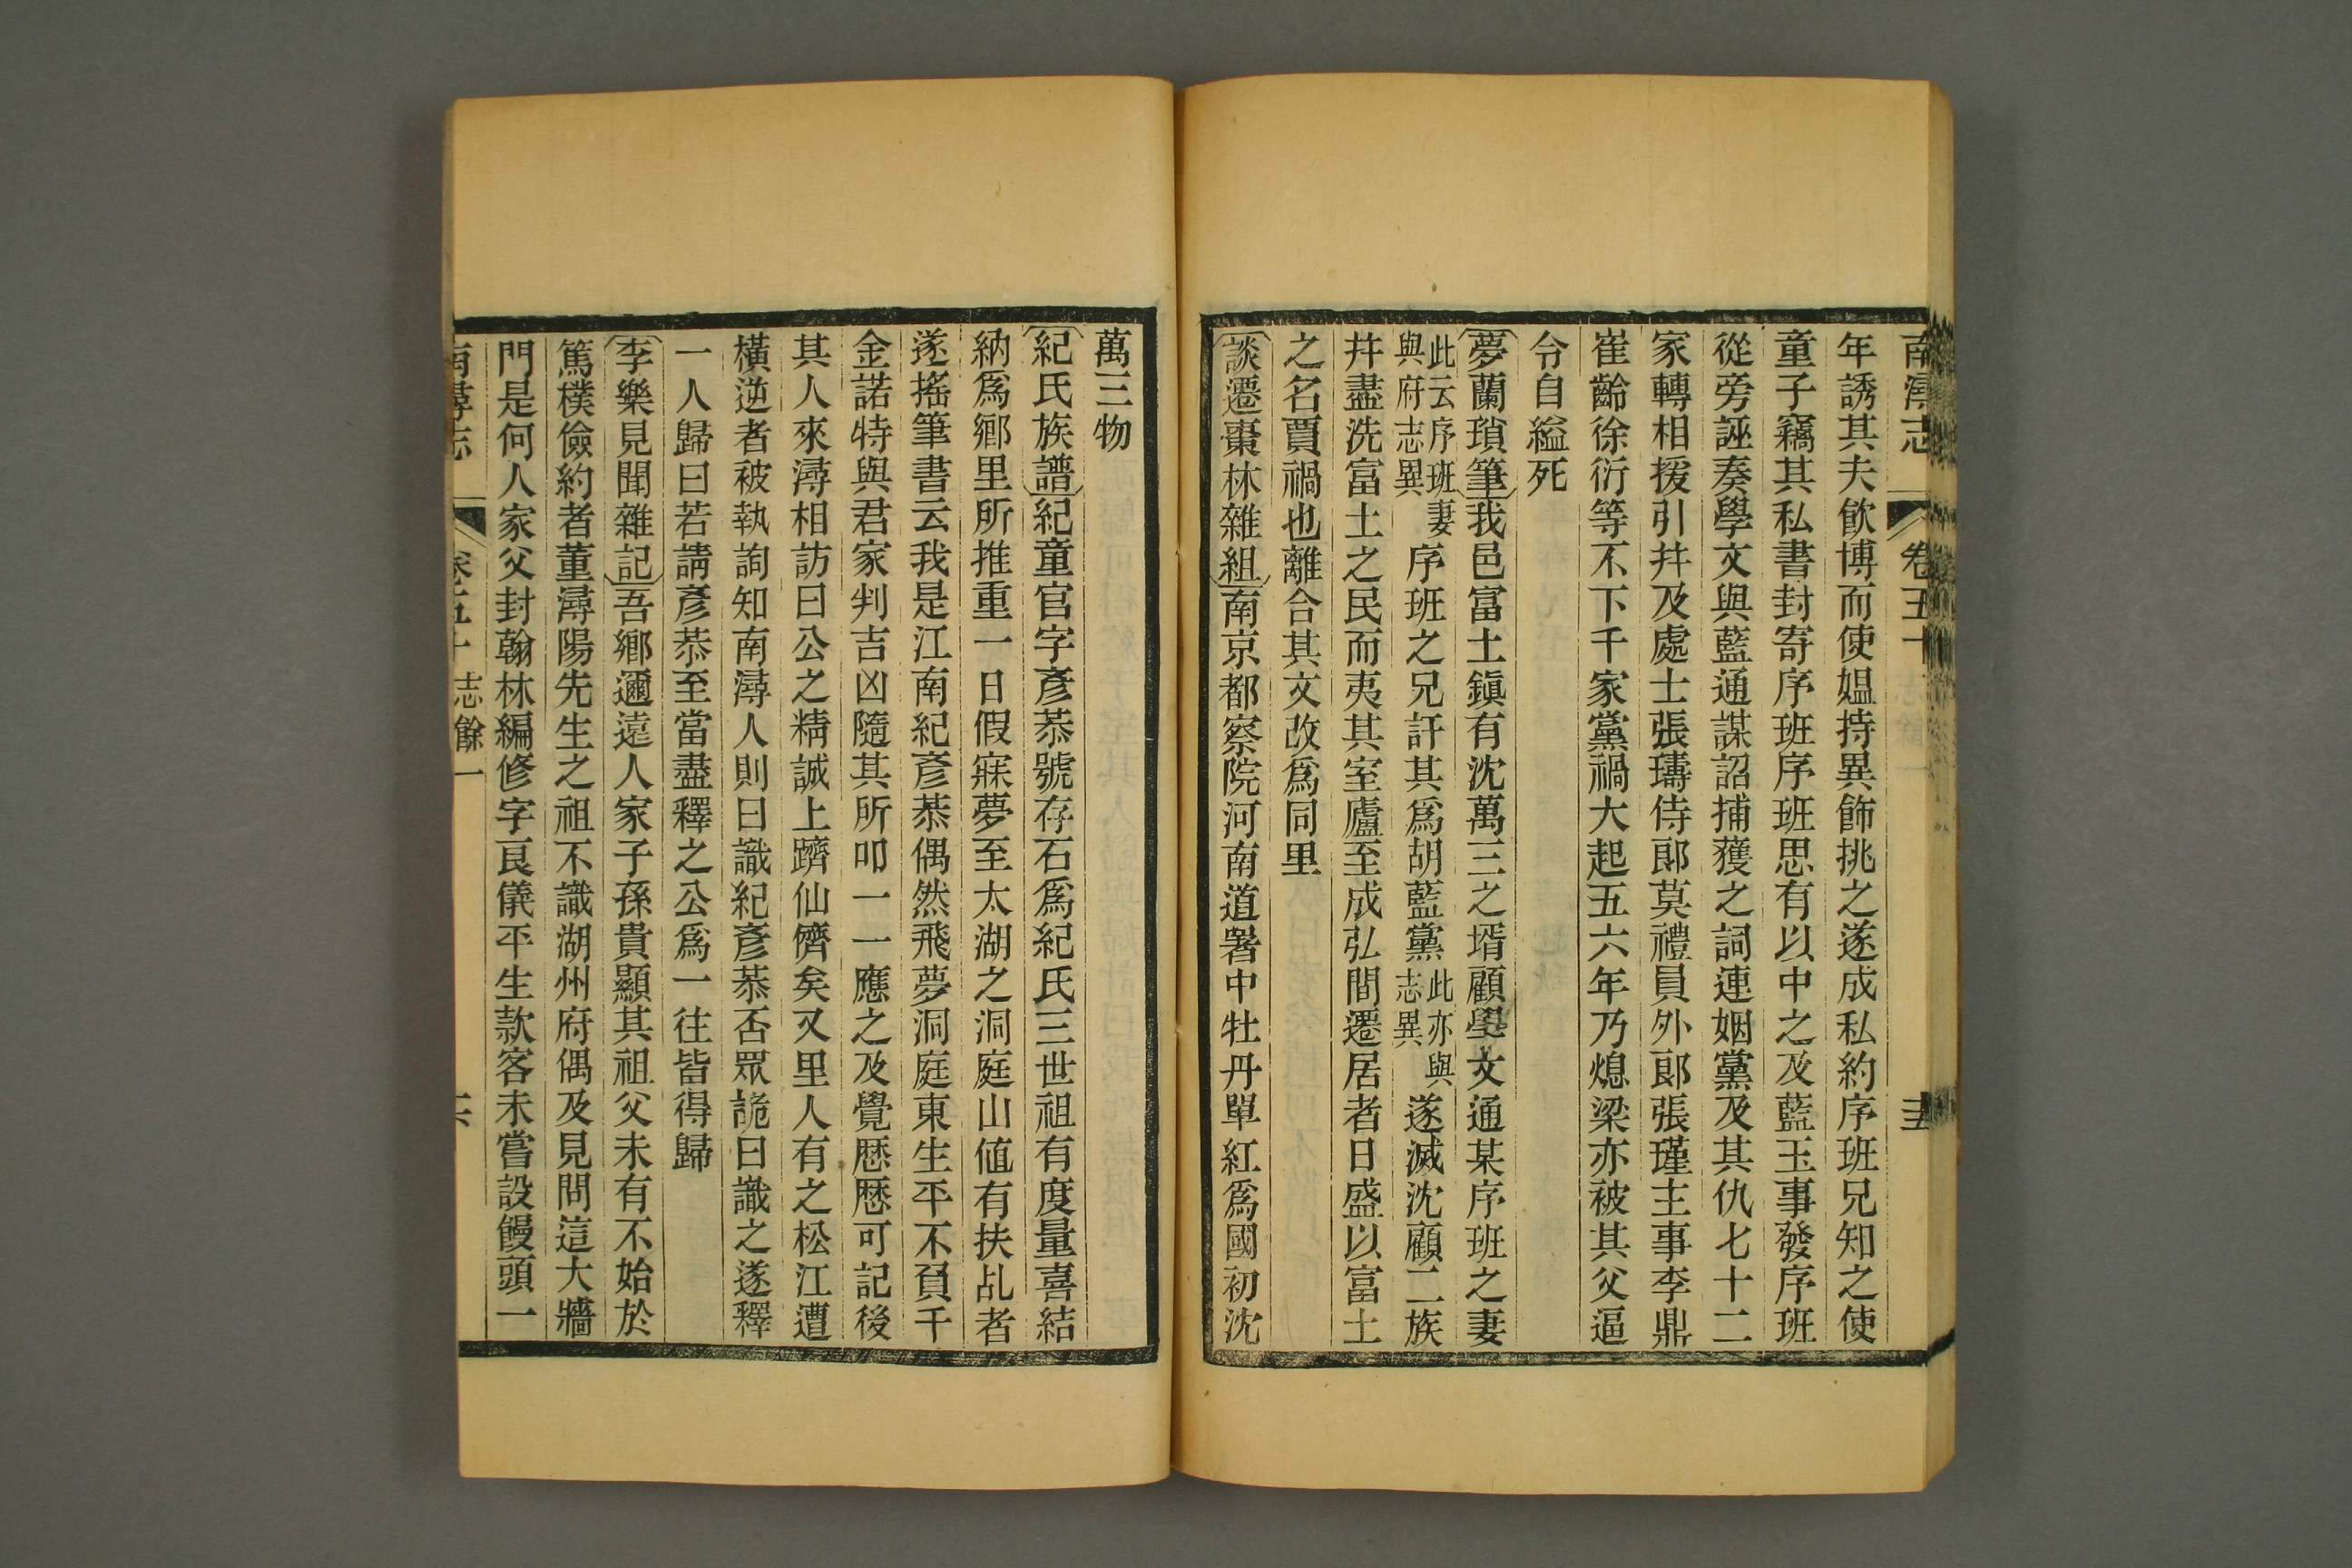 南潯志
卷五十
志餘一
年誘其夫飲博而使媼持異飾挑之遂成私約序班兄知之使
童子竊其私書封寄序班序班思有以中之及藍玉事發序班
從旁誣奏學文與藍通謀詔捕獲之詞連姻黨及其仇七十二
家轉相援引幷及處士張璹侍郎莫禮員外郎張瑾主事李鼎
崔齡徐衍等不下千家黨禍大起五六年乃熄梁亦被其父逼
令自縊死
夢蘭瑣筆我邑富土鎮有沈萬三之壻顧學文通某序班之妻
此云序班妻
與府志異
序班之兄訐其爲胡藍黨
此亦與
志異
遂滅沈顧二族
幷盡洗富土之民而夷其室廬至成弘間遷居者日盛以富土
之名賈禍也離合其文改爲同里
談遷棗林雜組南京都察院河南道署中牡丹單紅爲國初沈
萬三物
紀氏族譜紀童官字彥恭號存石爲紀氏三世祖有度量喜結
納爲鄉里所推重一日假寐夢至太湖之洞庭山值有扶乩者
遂搖筆書云我是江南紀彥恭偶然飛夢洞庭東生平不負千
金諾特與君家判吉凶隨其所叩一一應之及覺歷歷可記後
其人來潯相訪曰公之精誠上躋仙儕矣又里人有之松江遭
橫逆者被執詢知南潯人則曰識紀彥恭否眾詭曰識之遂釋
一人歸曰若請彥恭至當盡釋之公爲一往皆得歸
李樂見聞雜記吾鄉邇遠人家子孫貴顯其祖父未有不始於
篤樸儉約者董潯陽先生之祖不識湖州府偶及見問這大牆
門是何人家父封翰林編修字艮儀平生款客未嘗設饅頭一
南潯志
卷五十
志餘一